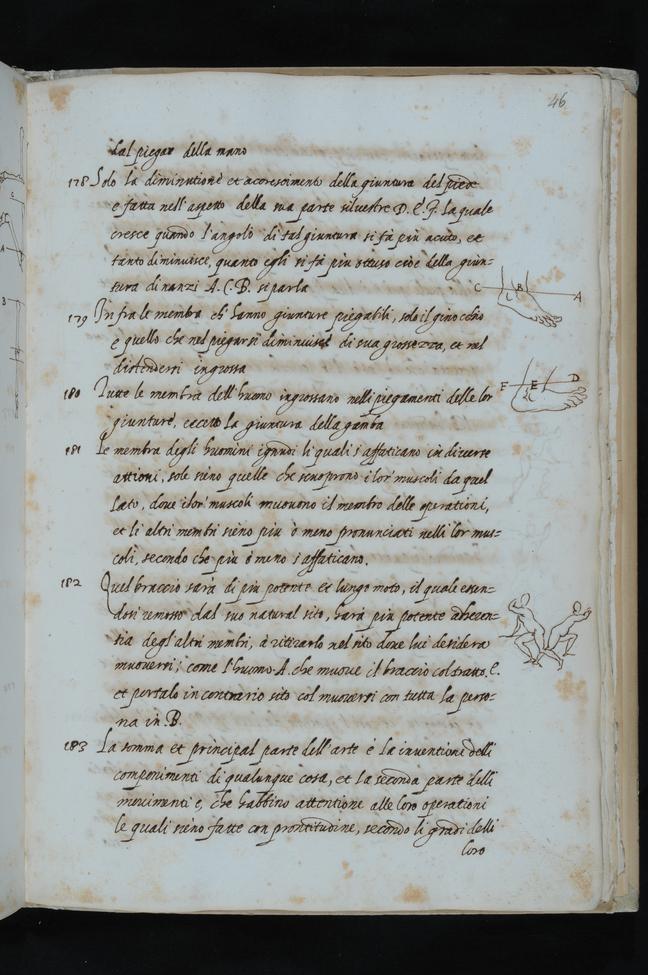 46
dal piegar della mano
178 Solo la diminutione et accrescimento della giuntura del piede
e fatta nell'aspetto della sua parte silvestre D. E. F. la quale
cresce quando l'angolo di tal giuntura si fà più acuto, et
tanto diminuisce, quanto egli si fà più ottuso cioè della giun-
tura dinanzi A. C. B. si parla
C L B A
179 In fra le membra ch'hanno giunture piegabili, solo il ginocchio
è quello che nel piegarsi diminuisce di sua grossezza, et nel
distendersi ingrossa
180 Tutte le membra dell'huomo ingrossano nelli piegamenti delle lor
giunture, eccetto la giuntura della gamba
F E D
181 Le membra degli huomini ignudi li quali s'affaticano in diverse
attioni, sole sieno quelle che scuoprono i lor' muscoli da quel
lato, dove i lor' muscoli muovono il membro delle operationi,
et li altri membri sieno più ò meno pronunciati nelli lor mus=
coli, secondo che più ò meno s'affaticano.
182 Quel braccio sarà di più potente et lungo moto, il quale essen-
dosi remosso dal suo natural sito, harà più potente adheren-
tia degl'altri membri, à ritirarlo nel sito dove lui desidera
muoversi; come l'huomo A. che muove il braccio col tratto. C.
et portalo in contrario sito col muoversi con tutta la perso-
na in B.
183 La somma et principal parte dell'arte è la inventione delli
componimenti di qualunque cosa, et la seconda parte delli
movimenti e, che habbino attentione alle loro operationi
le quali sieno fatte con prontitudine, secondo li gradi delli
loro